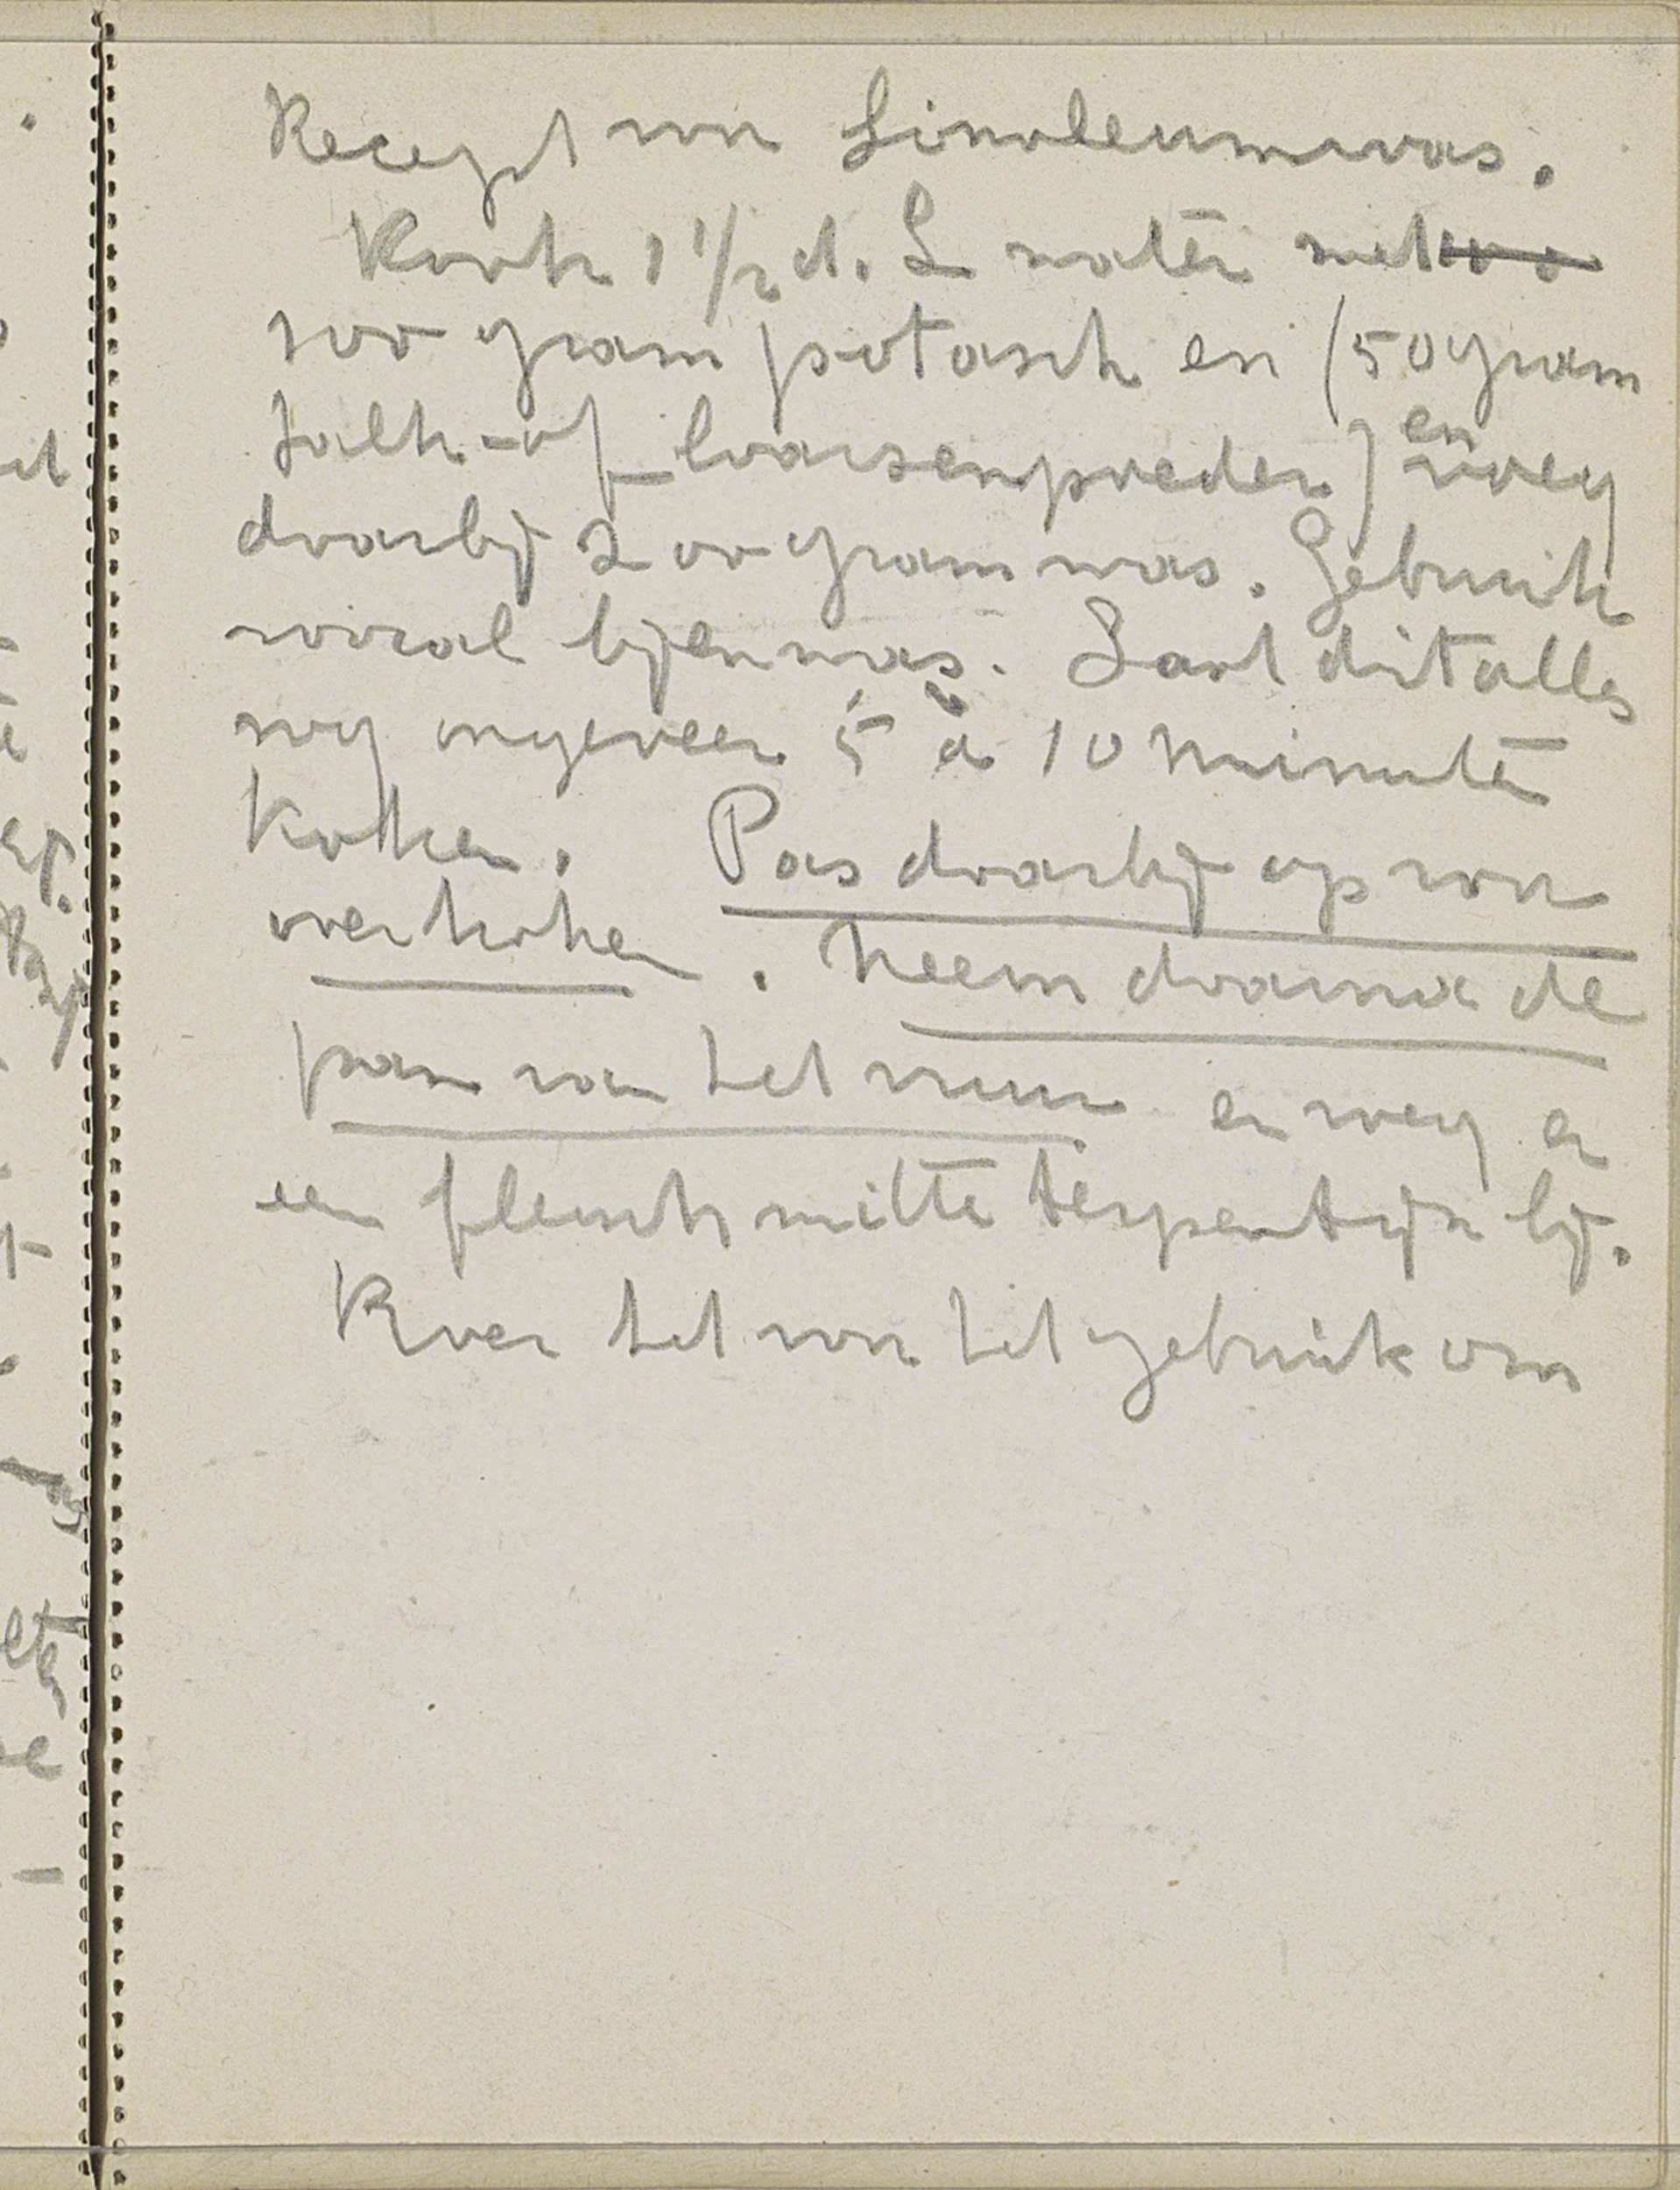 Recept voor Linoleumwas.
Kook 1 1/2 d. L water met
100 gram potasch en (50 gram
talk- of laarsenpoeder) en voeg
daarbij 200 gram was. Gebruik
vooral bijenwas. Laat dit alles
nog ongeveer 5 à 10 minuten
koken. Pas daarbij op voor
overkoken. Neem daarna de
pan van het vuur en voeg er
een flesch witte terpentijn bij.
Roer het voor het gebruik om